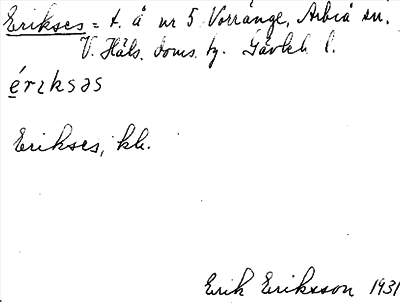 Erikses = t. å nr 5 Vorränge, Arbrå sn.
V. Häls. doms. tg. Gävleb. l.
érıksəs
Erikses, kh.
Erik Eriksson 1931